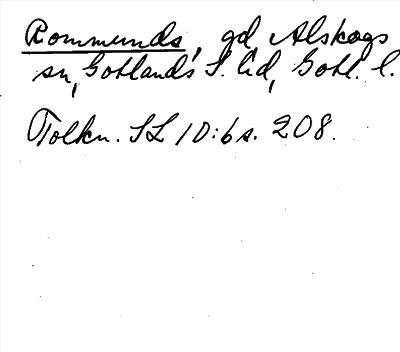 Rommunds, gd Alskogs
sn, Gotlands S. hd, Gotl. l.
Tolkn. SL 10:6 s. 208.